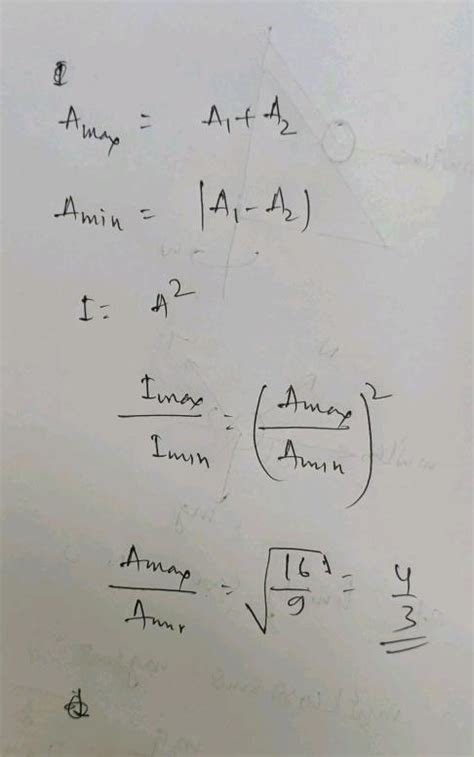 A_max = A_1 + A_2
A_min = |A_1 - A_2)
I = A^2
I_max / I_min = (A_max / A_min)^2
A_max / A_min = √(16/9) = 4/3